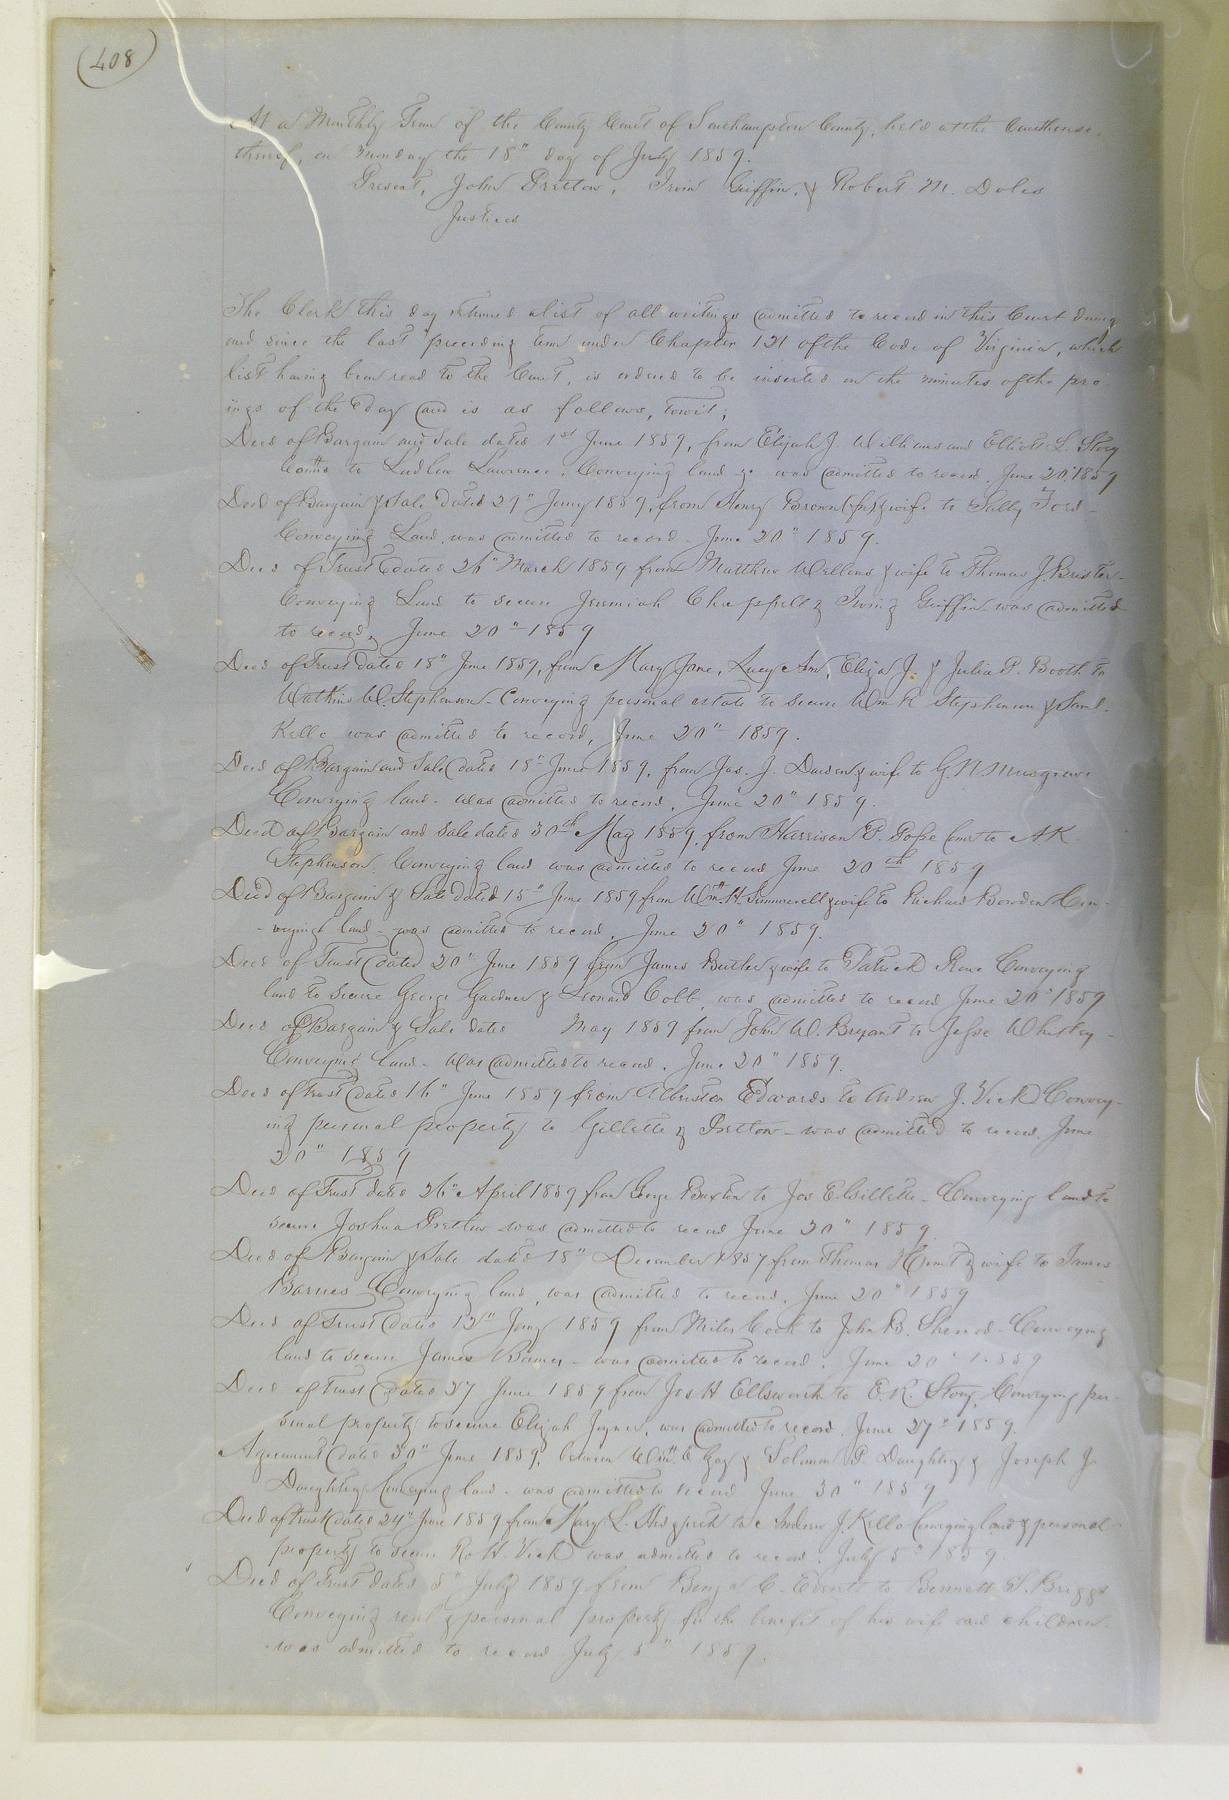 (408)
At a Monthly Term of the County Court of Southampton County, held at the Courthouse
thereof, on Monday the 18" day of July 1859.
Present, John Pretlow, Irvin Griffin, & Robert M. Doles
Justices
The Clerk this day returned a list of all writings admitted to record in this Court during
and since the last preceding term under Chapter 121 of the Code of Virginia, which
list having been read to the Court, is ordered to be inserted in the minutes of the pro
ings of the day and is as follows, towit;
Deed of Bargain and Sale dated 1st June 1859, from Elijah J. Williams and Elliott L. Story
Comrs to Ludlow Lawrence. Conveying land &c was admitted to record. June 20" 1859
Deed of Bargain & Sale dated 29" Jany 1859, from Henry Brown & wife to Sally Ford
Conveying Land, was admitted to record. June 20" 1859.
Deed of Trust dated 26" March 1859 from Matthew Wellons & wife to Thomas J. Brister
Conveying Land to secure Jeremiah Chappell & Irving Griffin was admitted
to record, June 20" 1859
Deed of Trust dated 18" June 1859, from Mary Jane, Lucy Ann, Eliza J. & Julia P. Booth to
Watkins W. Stephenson - Conveying personal estate to secure Wm R Stephenson & Saml.
Kello was admitted to record, June 20" 1859.
Deed of Bargain and Sale dated 18" June 1859, from Jas. J. Darden & wife to G. N. Musgrave
Conveying land - was admitted to record. June 20" 1859.
Deed of Bargain and Sale dated 30th May 1859, from Harrison P. Pope Comr to A K
Stephenson. Conveying land was admitted to record June 20th 1859
Deed of Bargain & Sale dated 15" June 1859 from Wm H. Summerell & wife to Richard Bowden Con-
-veying land - was admitted to record. June 20" 1859.
Deed of Trust dated 20" June 1859 from James Butler & wife to Patrick Conveying
land to secure George Gardner & Leonard Cobb, was admitted to record June 20" 1859
Deed of Bargain & Sale dated May 1859 from John W. Bryant to Jesse Whitley -
Conveying land - was admitted to record. June 20" 1859.
Deed of trust dated 16" June 1859 from Albriston Edwards to Andrew J. Vick Convey-
ing personal property to Gillette & Pretlow - was admitted to record. June
20" 1859
Deed of Trust dated 26" April 1859 from George Buxton to Jos E. Gillette - Conveying land to
secure Joshua Pretlow was admitted to record June 20" 1859
Deed of Bargain & Sale dated 18" December 1857 from Thomas & wife to James
Barnes Conveying land, was admitted to record. June 20" 1859
Deed of Trust dated 12" Jany 1859 from Miles Cook to John B. Sherrod - Conveying
land to secure James Barnes - was admitted to record. June 20" 1859
Deed of Trust dated 27 June 1859 from Jos H Ellsworth to E. R. Story, Conveying per-
sonal property to secure Elijah Joyner, was admitted to record. June 27" 1859.
Agreement dated 30" June 1859, between Wm. E Gay & Solomon P. Daughtrey & Joseph J.
Daughtrey Conveying land - was admitted to record June 30" 1859
Deed of trust dated 24" June 1859 from Mary L. to Andrew J. Kello Conveying land & personal
property to secure Ro H. Vick was admitted to record. July 5" 1859
Deed of Trust dated 5" July 1859 from Benja C. to Bennett S. Briggs
Conveying real & personal property for the benefit of his wife and children
was admitted to record July 5" 1859.